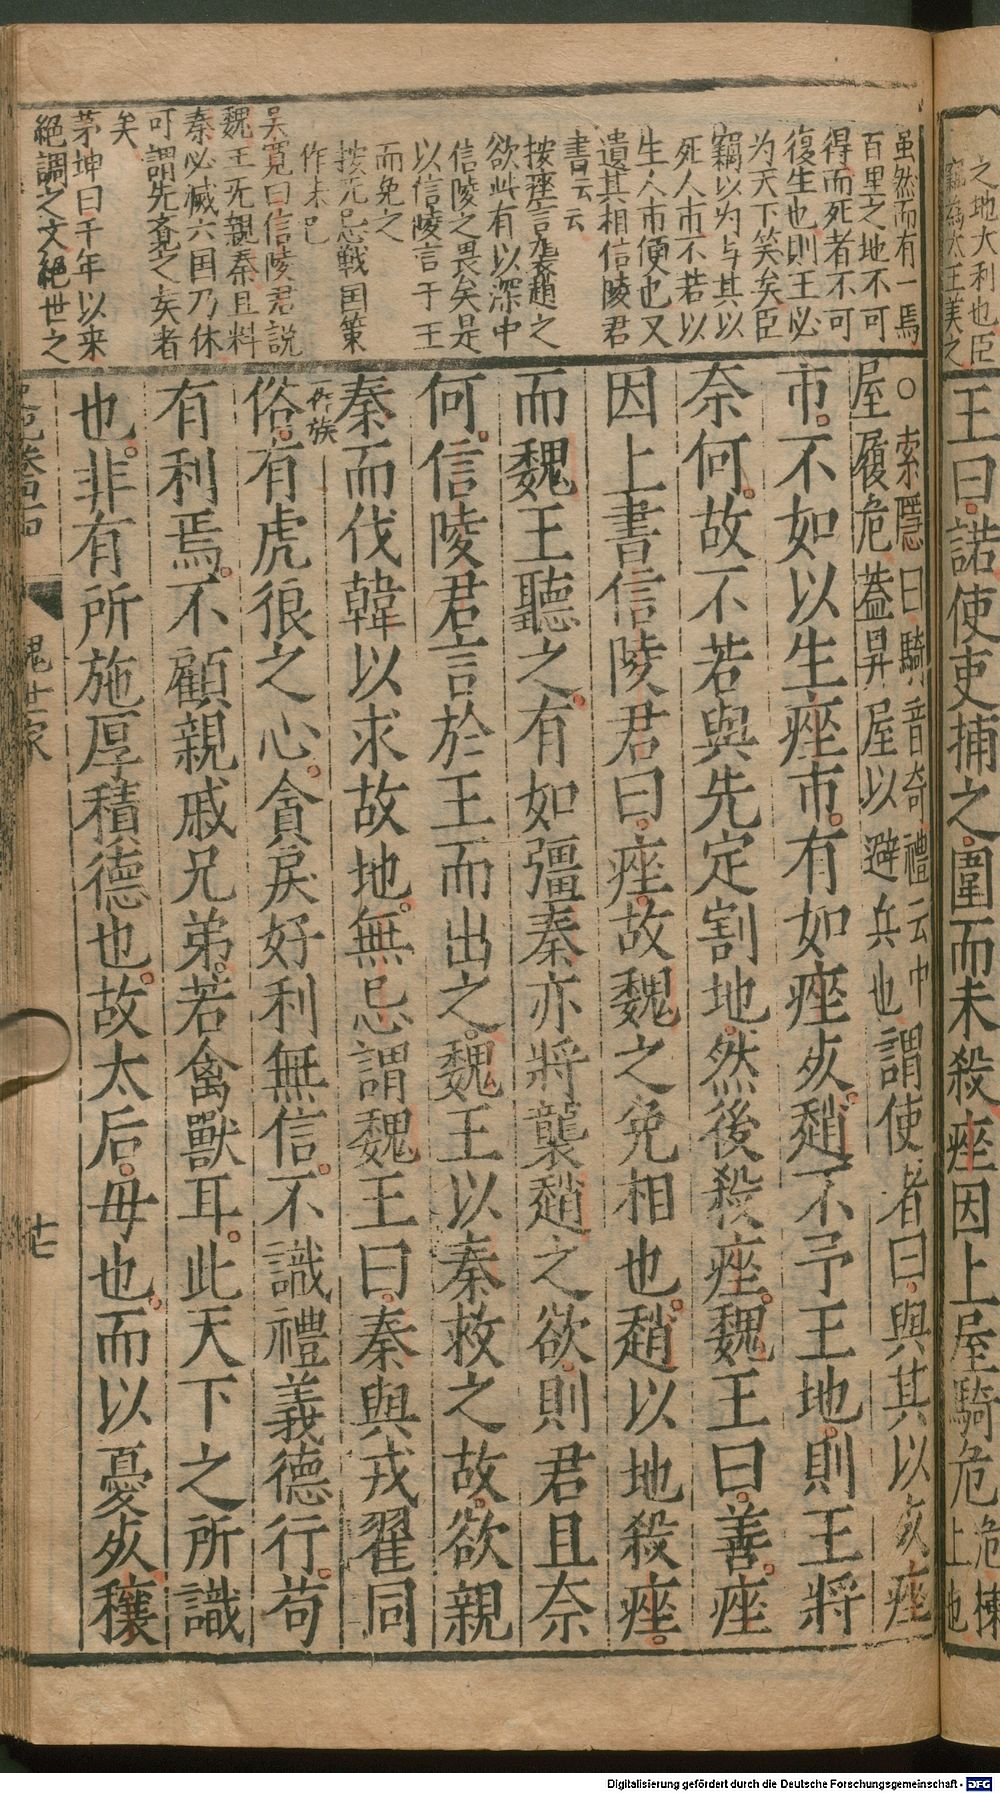 之地大利也臣
竊為大王美之
王曰諾使吏捕之圍而未殺痤因上屋騎危危棟
上也
雖然而有一焉
百里之地不可
得而死者不可
復生也則王必
为天下笑矣臣
竊以为与其以
死人市不若以
生人市便也又
遺其相信陵君
書云云
按痤言襲趙之
欲此有以深中
信陵之畏矣是
以信陵言于王
而免之
按无忌戦国策
作朱己
吳寬曰信陵君説
魏王旡親秦且料
秦必滅六国乃休
可謂先斉之矣者
矣
茅坤曰千年以来
絕調之文絕世之
○索隱曰騎音奇禮云中
屋履危蓋昇屋以避兵也謂使者曰與其以死痤
市不如以生痤市有如痤死趙不予王地則王將
奈何故不若與先定割地然後殺痤魏王曰善痤
因上書信陵君曰痤故魏之免相也趙以地殺痤
而魏王聽之有如彊秦亦將襲趙之欲則君且奈
何信陵君言於王而出之魏王以秦救之故欲親
秦而伐韓以求故地無忌謂魏王曰秦與戎翟同
俗一作族有虎狼之心貪戾好利無信不識禮義德行苟
有利焉不顧親戚兄弟若禽獸耳此天下之所識
也非有所施厚積德也故太后母也而以憂死穰
史記卷四十四
魏世家
十七
Digitalisierung gefördert durch die Deutsche Forschungsgemeinschaft - DFG